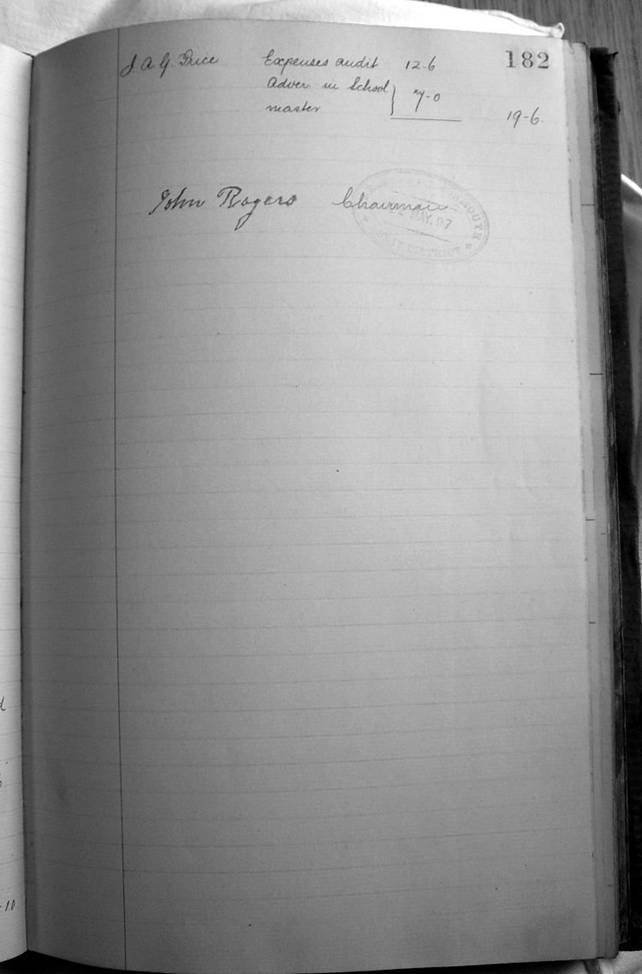 182
J. A. G. Price Expenses audit 12-6
Adver in School } 7-0
master 19-6.
John Rogers Chairman
MAY. 97
DISTRICT
d
-10